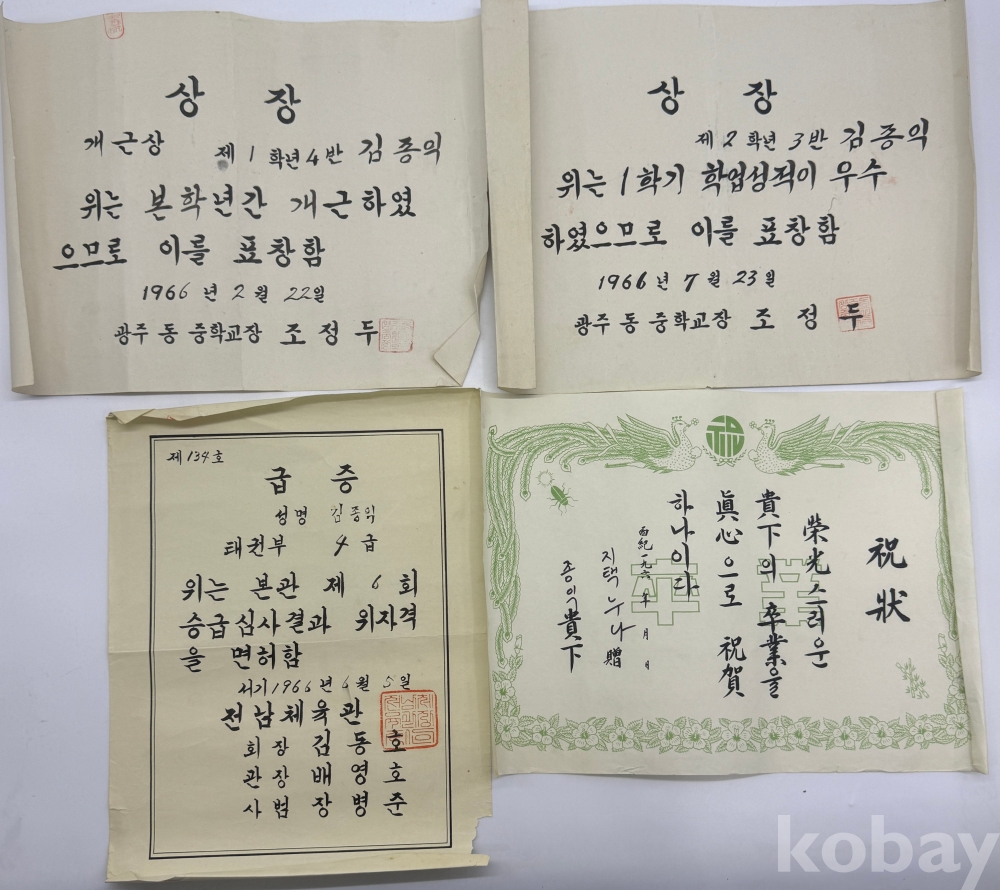 상 장
개근상 제 1 학년 4 반 김종익
위는 본학년간 개근하였
으므로 이를 표창함
1966 년 2 월 22 일
광주 동 중학교장 조 정 두
상 장
제 2 학년 3 반 김종익
위는 1 학기 학업성적이 우수
하였으므로 이를 표창함
1966 년 7 월 23 일
광주 동 중학교장 조 정 두
제 134 호
급 증
성명 김종익
태권부 4 급
위는 본관 제 6 회
승급심사결과 위자격
을 면허함
서기 1966 년 6 월 5 일
전남체육관
회장 김동호
관장 배영호
사범 장병준
祝狀
榮光스러운
貴下의 卒業을
眞心으로 祝賀
하나이다
西紀一九六 年 月 日
지택 누나 贈
종익 貴下
卒業
kobay